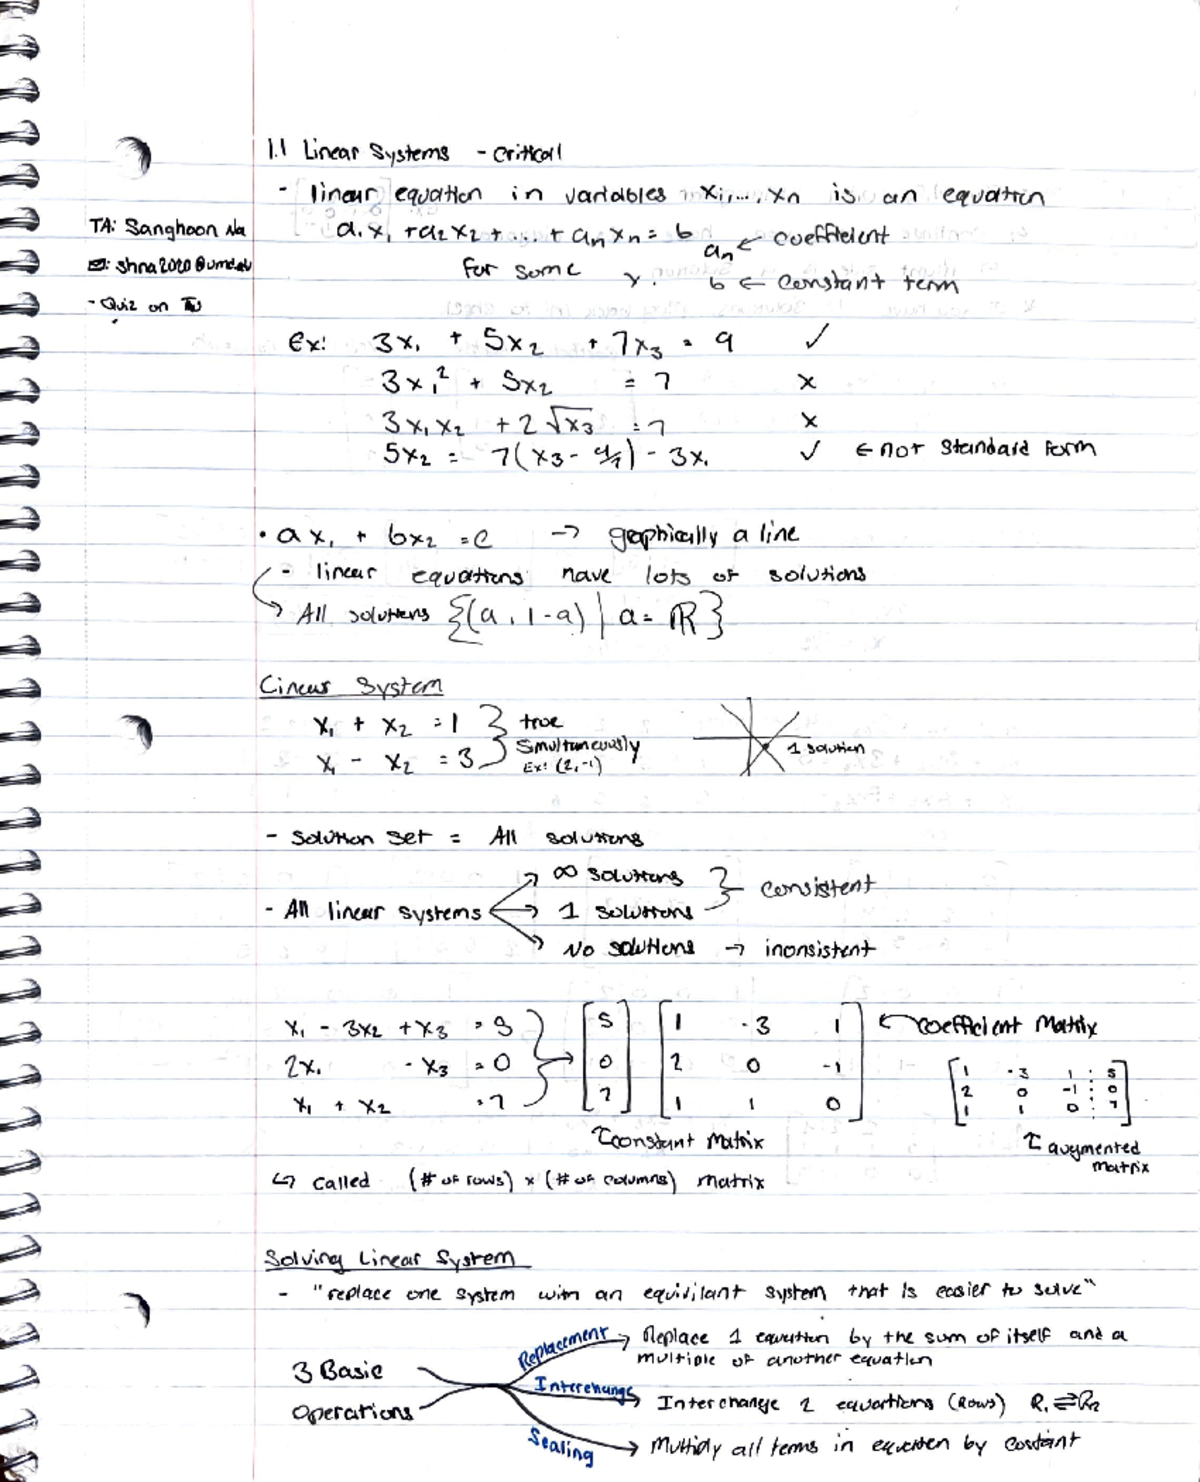 1.1 Linear Systems - Critical
- linear equation in variables x₁,..., xₙ is an equation
TA: Sanghoon Na
a₁x₁ + a₂x₂ + ... + aₙxₙ = b
aₙ ← coefficient
✉: shna2020@umd.edu
for some
b ← constant term
- Quiz on TU
Ex: 3x₁ + 5x₂ + 7x₃ = 9 ✓
3x₁² + 5x₂ = 7 x
3x₁x₂ + 2√x₃ = 7 x
5x₂ = 7(x₃ - 9/7) - 3x₁ ✓ ← not standard form
• ax₁ + bx₂ = c → graphically a line
- linear equations have lots of solutions
↳ All solutions {(a, 1-a) | a = ℝ}
Linear System
x₁ + x₂ = 1 } true
x₁ - x₂ = 3 simultaneously
Ex: (2,-1)
1 solution
- Solution Set = All solutions
- All linear systems
→ ∞ solutions } consistent
→ 1 solutions
→ No solutions → inconsistent
x₁ - 3x₂ + x₃ = 5 } → [5] [1 -3 1] ← coefficient Matrix
2x₁ - x₃ = 0 [0] [2 0 -1]
x₁ + x₂ = 7 [7] [1 1 0]
[1 -3 1 : 5]
[2 0 -1 : 0]
[1 1 0 : 7]
↑ constant Matrix
↑ augmented
matrix
↳ called (# of rows) x (# of columns) matrix
Solving Linear System
- "replace one system with an equivilant system that is easier to solve"
3 Basic
Operations
Replacement → Replace 1 equation by the sum of itself and a
multiple of another equation
Interchange → Interchange 2 equations (Rows) R₁ ⇌ R₂
Scaling → Multiply all terms in equation by constant